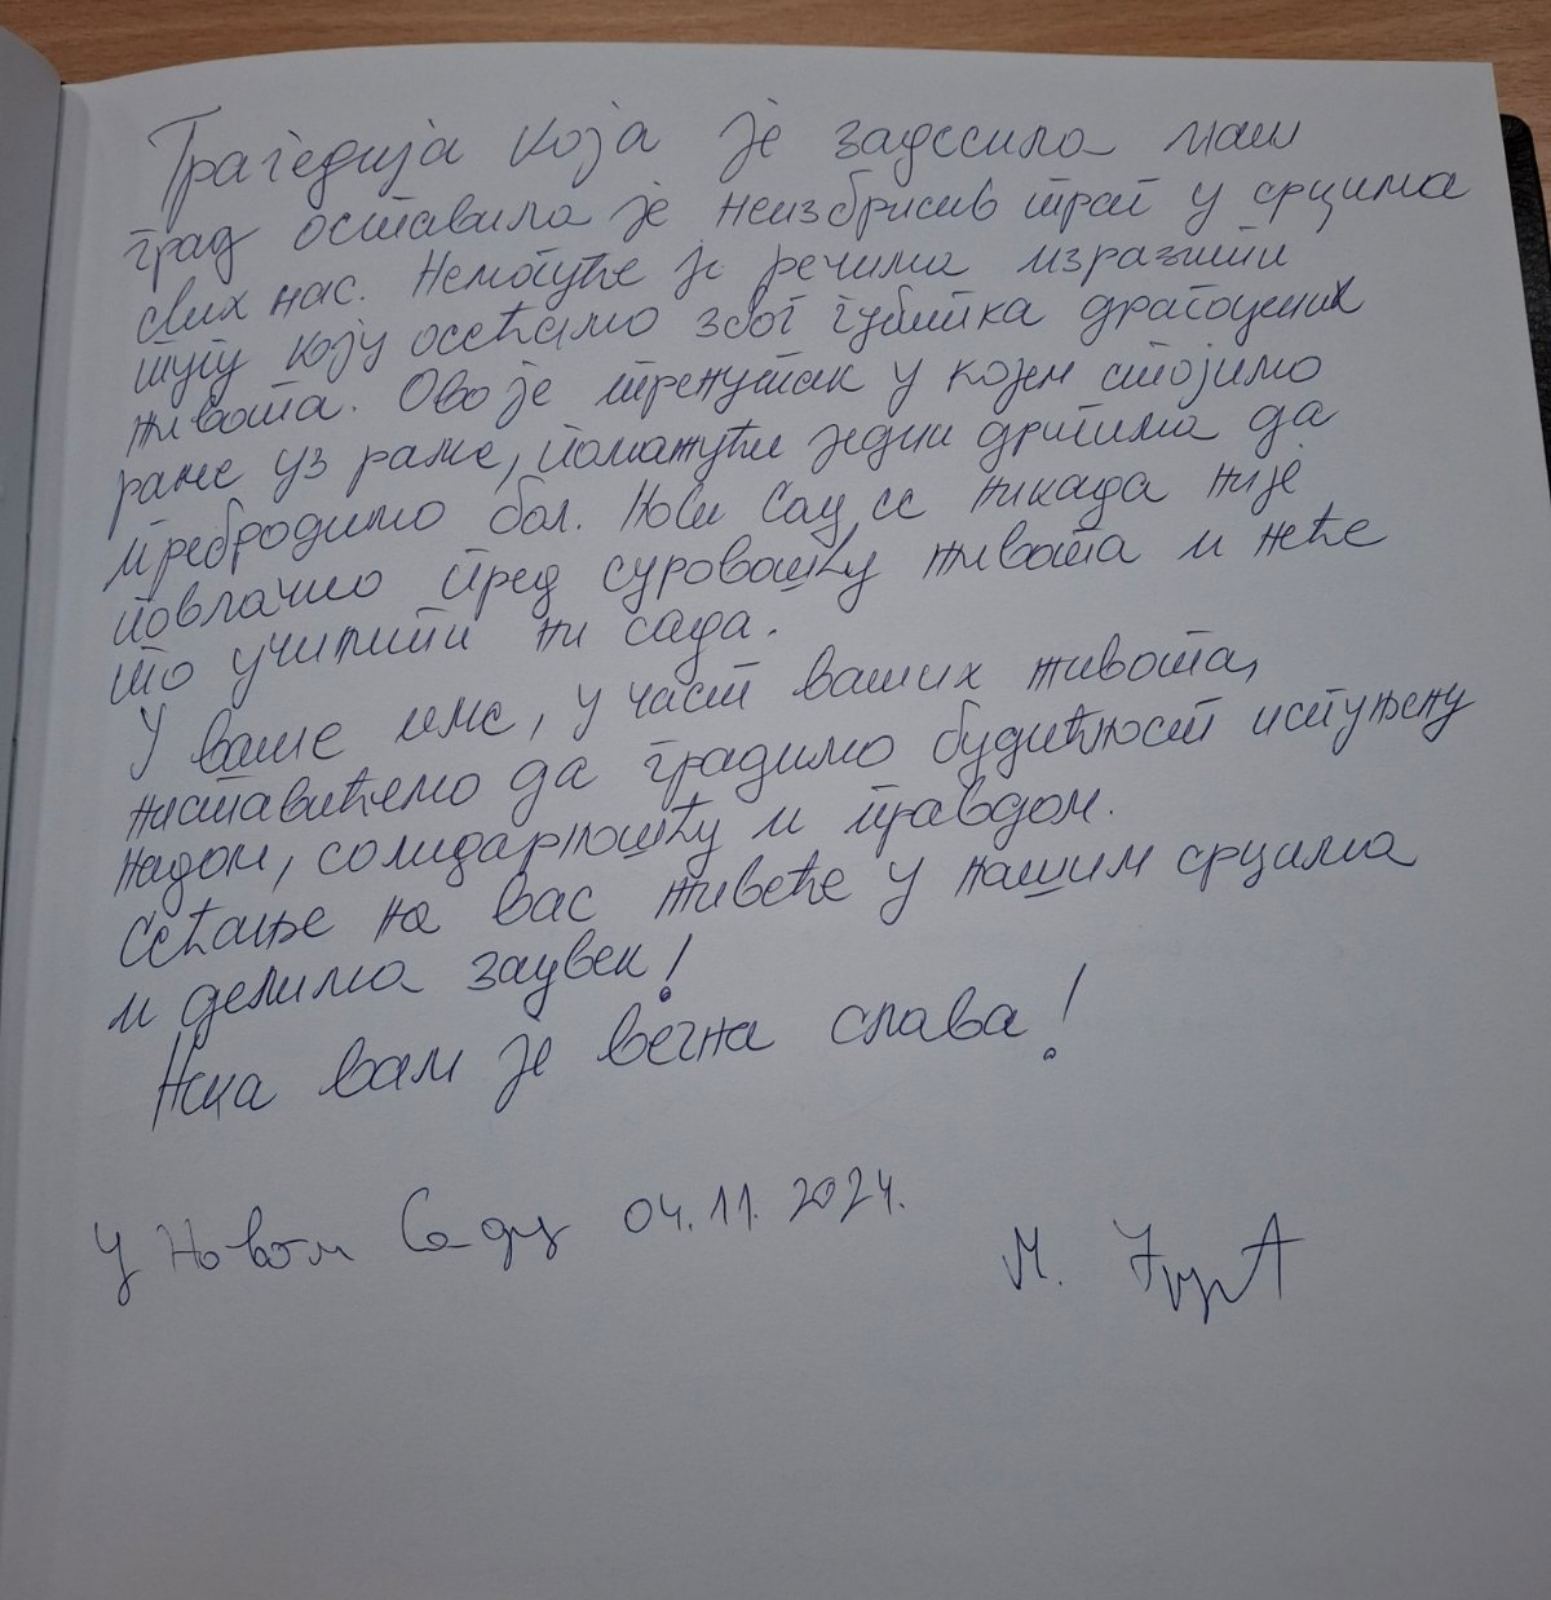 Трагедија која је задесила наш
град оставила је неизбрисив траг у срцима
свих нас. Немогуће је речима изразити
тугу коју осећамо због губитка драгоцених
живота. Ово је тренутак у којем стојимо
раме уз раме, помажући једни другима да
пребродимо бол. Нови Сад се никада није
повлачио пред суровошћу живота и неће
то учинити ни сада.
У ваше име, у част ваших живота,
наставићемо да градимо будућност испуњену
надом, солидарношћу и правдом.
Сећање на вас живеће у нашим срцима
и делима заувек!
Нека вам је вечна слава!
У Новом Саду 04.11.2024.
М.